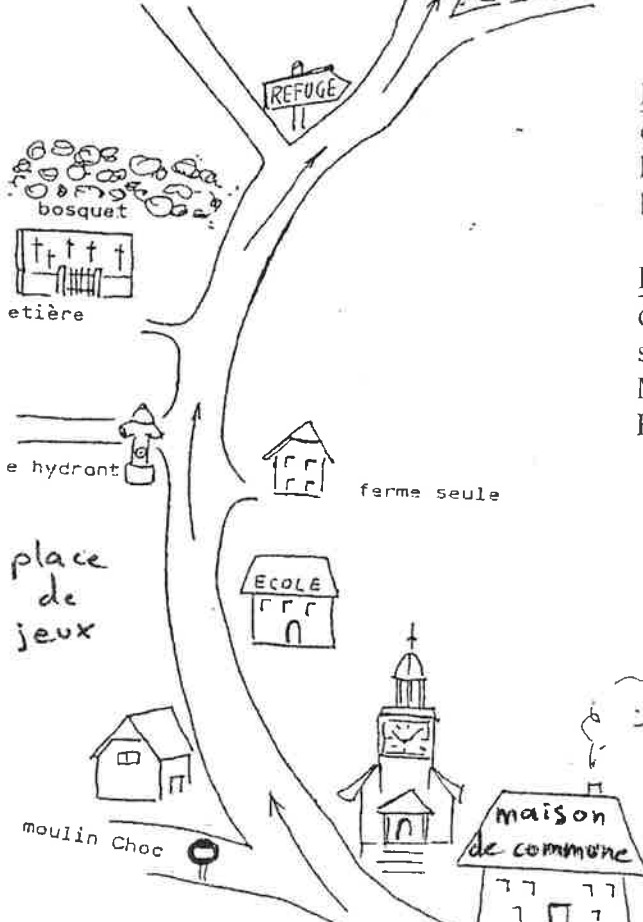 REFUGE
bosquet
etière
e hydrant
ferme seule
place
de
jeux
ECOLE
moulin Choc
maison
de commune